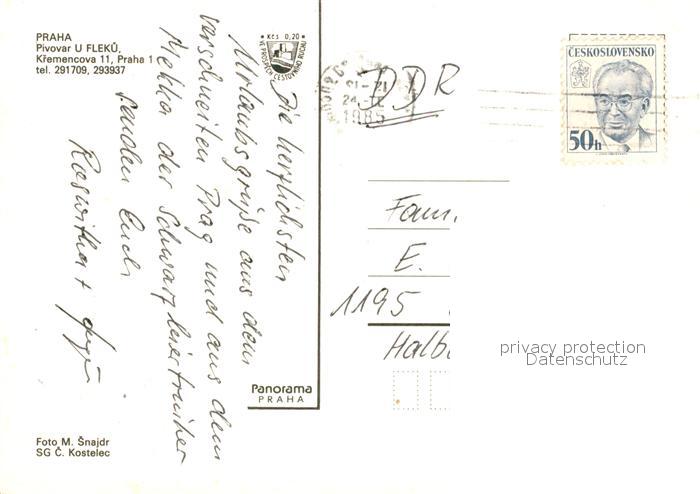 PRAHA
Pivovar U FLEKŮ,
Křemencova 11, Praha 1
tel. 291709, 293937
Kčs 0,20
VE PROSPĚCH CESTOVNÍHO RUCHU
Die herzlichsten
Urlaubsgrüße aus dem
verschneiten Prag und aus dem
Mekka der Schwarzbiertrinker
senden Euch
Roswitha +
Panorama
PRAHA
Foto M. Šnajdr
SG Č. Kostelec
1985
DDR
ČESKOSLOVENSKO
50h
Fam.
E.
1195
Halb
privacy protection
Datenschutz